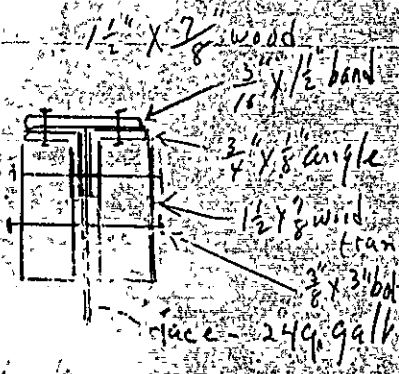 1 1/2" X 7/8" wood
3/16" X 1 1/2" band
3/4" X 1/8" angle
1 1/2 X 7/8 wood
3/8 X 3" bol
face - 24 g. galv